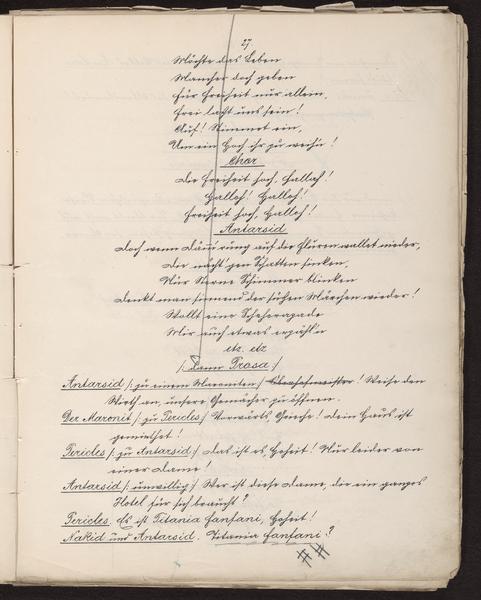 27
Möchte das Leben
Mancher doch geben
Für Freiheit nur allein,
Frei laßt uns sein!
Auf! Stimmet ein,
Um ein Hoch ihr zu weih'n!
Chor
Die Freiheit hoch, Halloh!
Halloh! Halloh!
Freiheit hoch, Halloh!
Antarsid
Doch wenn Dämm'rung auf die Fluren wallet nieder,
Die nächt'gen Schatten sinken,
Nur Sterne Schimmer blinken
Denkt man sinnend der süßen Märchen wieder!
Wollt eine Scheherazade
Mir auch etwas erzähl'n
etz. etz
/: Dann Prosa :/
Antarsid /: zu einem Maroniten :/ ! Weise den
Wirth an, unsere Gemächer zu öffnen.
Der Maronit /: zu Pericles :/ Vorwärts, Grieche! Dein Haus ist
gemiethet!
Pericles /: zu Antarsid :/ Das ist es Hoheit! Nur leider von
einer Dame!
Antarsid /: unwillig :/ Wer ist diese Dame, die ein ganzes
Hotel für sich braucht?
Pericles. Es ist Titania Fanfani, Hoheit!
Nakid und Antarsid. Titania Fanfani?